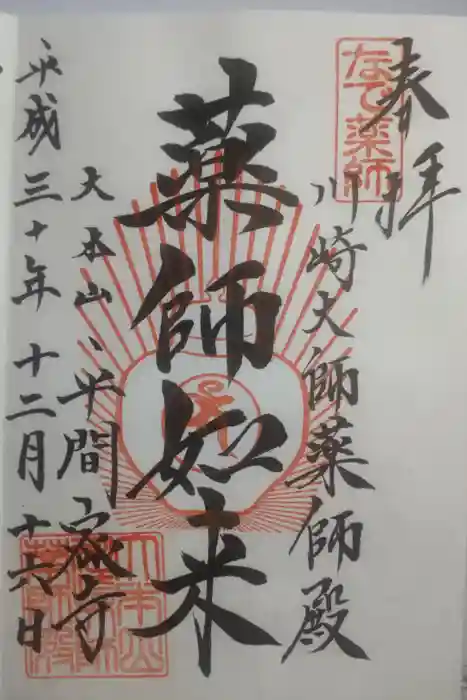 奉拝
なで薬師
川崎大師薬師殿
薬師如来
大本山、平間寺
平成三十年十二月十六日